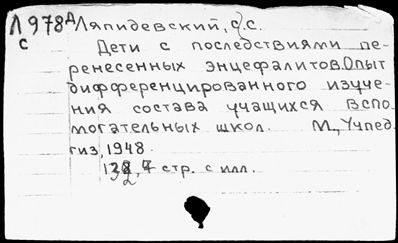 Л978Д Ляпидевский, С.С.
с
Дети с последствиями пе-
ренесенных энцефалитов.Опыт
дифференцированного изуче-
ния состава учащихся вспо-
могательных школ. М., Учпед-
гиз, 1948.
стр. с илл.